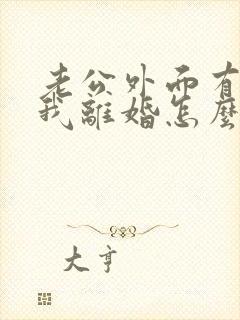 老公外面有
我離婚怎麼
大亨